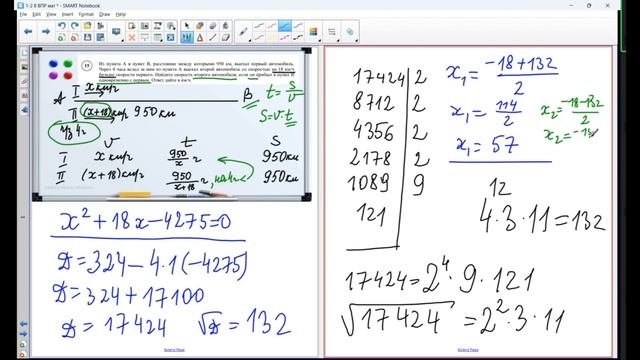 1-2 8 ВПР мат * - SMART Notebook
15
Из пункта А в пункт В, расстояние между которыми 950 км, выехал первый автомобиль.
Через 4 часа вслед за ним из пункта А выехал второй автомобиль со скоростью на 18 км/ч
больше скорости первого. Найдите скорость второго автомобиля, если он прибыл в пункт В
одновременно с первым. Ответ дайте в км/ч.
I x км/ч
A B
II (x+18) км/ч 950 км
t = S/v
S = v·t
ч/з 4 ч
v t S
I x км/ч 950/x ч 950 км
II (x+18) км/ч 950/(x+18) ч, на 4ч< 950 км
x² + 18x - 4275 = 0
D = 324 - 4·1(-4275)
D = 324 + 17100
D = 17424 √D = 132
17424 2
8712 2
4356 2
2178 2
1089 9
121
x₁ = (-18+132)/2
x₁ = 114/2
x₁ = 57
x₂ = (-18-132)/2
x₂ = -15
12
4·3·11 = 132
17424 = 2⁴·9·121
√17424 = 2²·3·11